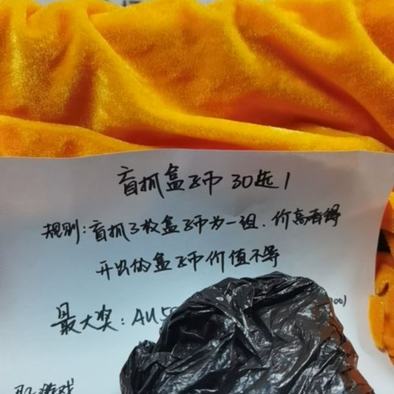 盲抓盒子币30选1
规则:盲抓3枚盒子币为一组.价高者得
开出的盒子币价值不等
最大奖:AU5
游戏